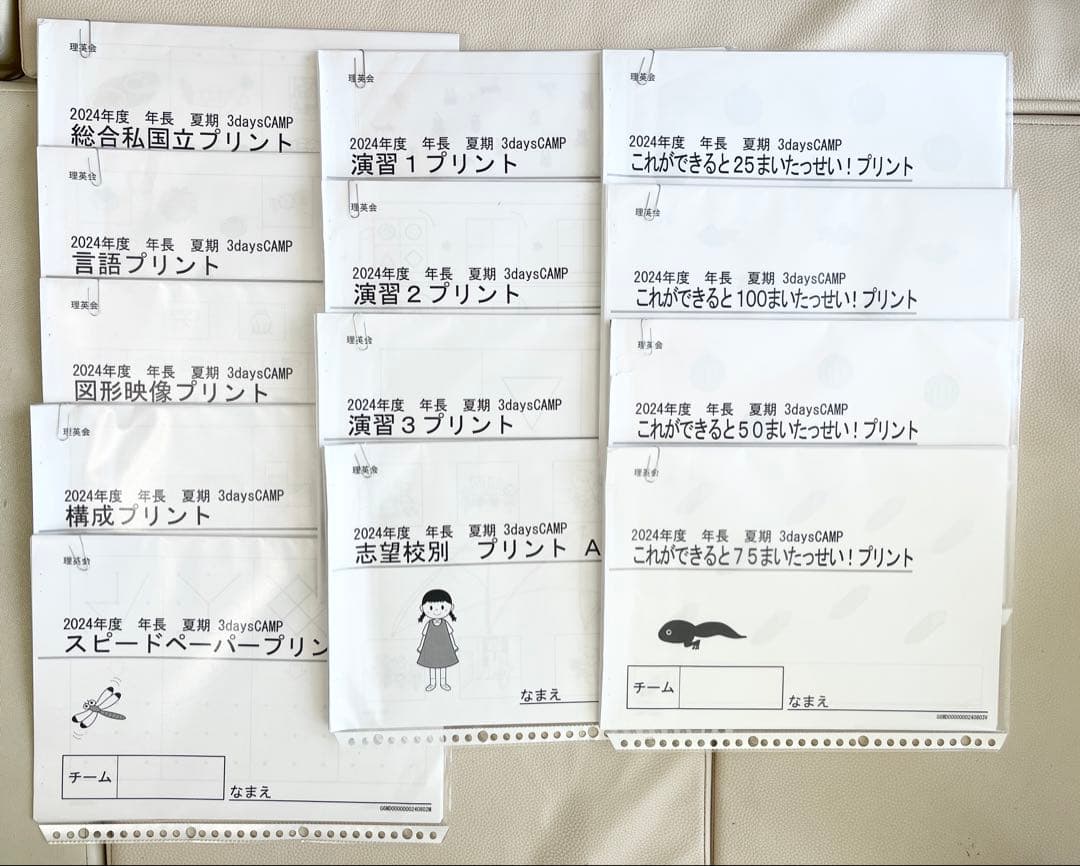 理英会
2024年度 年長 夏期 3daysCAMP
総合私国立プリント
理英会
2024年度 年長 夏期 3daysCAMP
言語プリント
理英会
2024年度 年長 夏期 3daysCAMP
図形映像プリント
理英会
2024年度 年長 夏期 3daysCAMP
構成プリント
理英会
2024年度 年長 夏期 3daysCAMP
スピードペーパープリン
チーム
なまえ
理英会
2024年度 年長 夏期 3daysCAMP
演習1プリント
理英会
2024年度 年長 夏期 3daysCAMP
演習2プリント
理英会
2024年度 年長 夏期 3daysCAMP
演習3プリント
理英会
2024年度 年長 夏期 3daysCAMP
志望校別 プリント A
なまえ
理英会
2024年度 年長 夏期 3daysCAMP
これができると25まいたっせい！プリント
理英会
2024年度 年長 夏期 3daysCAMP
これができると100まいたっせい！プリント
理英会
2024年度 年長 夏期 3daysCAMP
これができると50まいたっせい！プリント
理英会
2024年度 年長 夏期 3daysCAMP
これができると75まいたっせい！プリント
チーム
なまえ